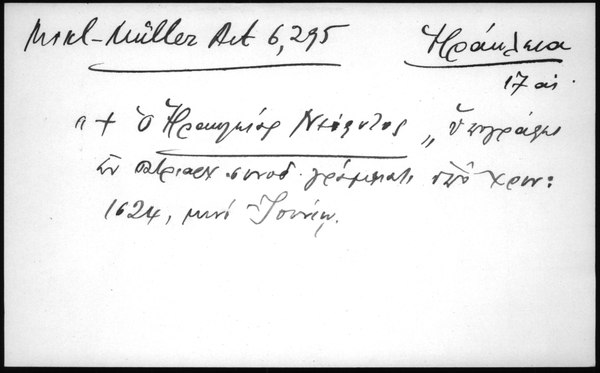 Mikl-Müller Act 6, 295
Ἡράκλεια
17 αἰ.
"+ ὁ Ἡρακλείας Νεόφυτος" ὑπογράφει
ἐν πατριαρχ. συνοδ. γράμματι τοῦ χρόν:
1624, μηνὶ Ἰουνίῳ.